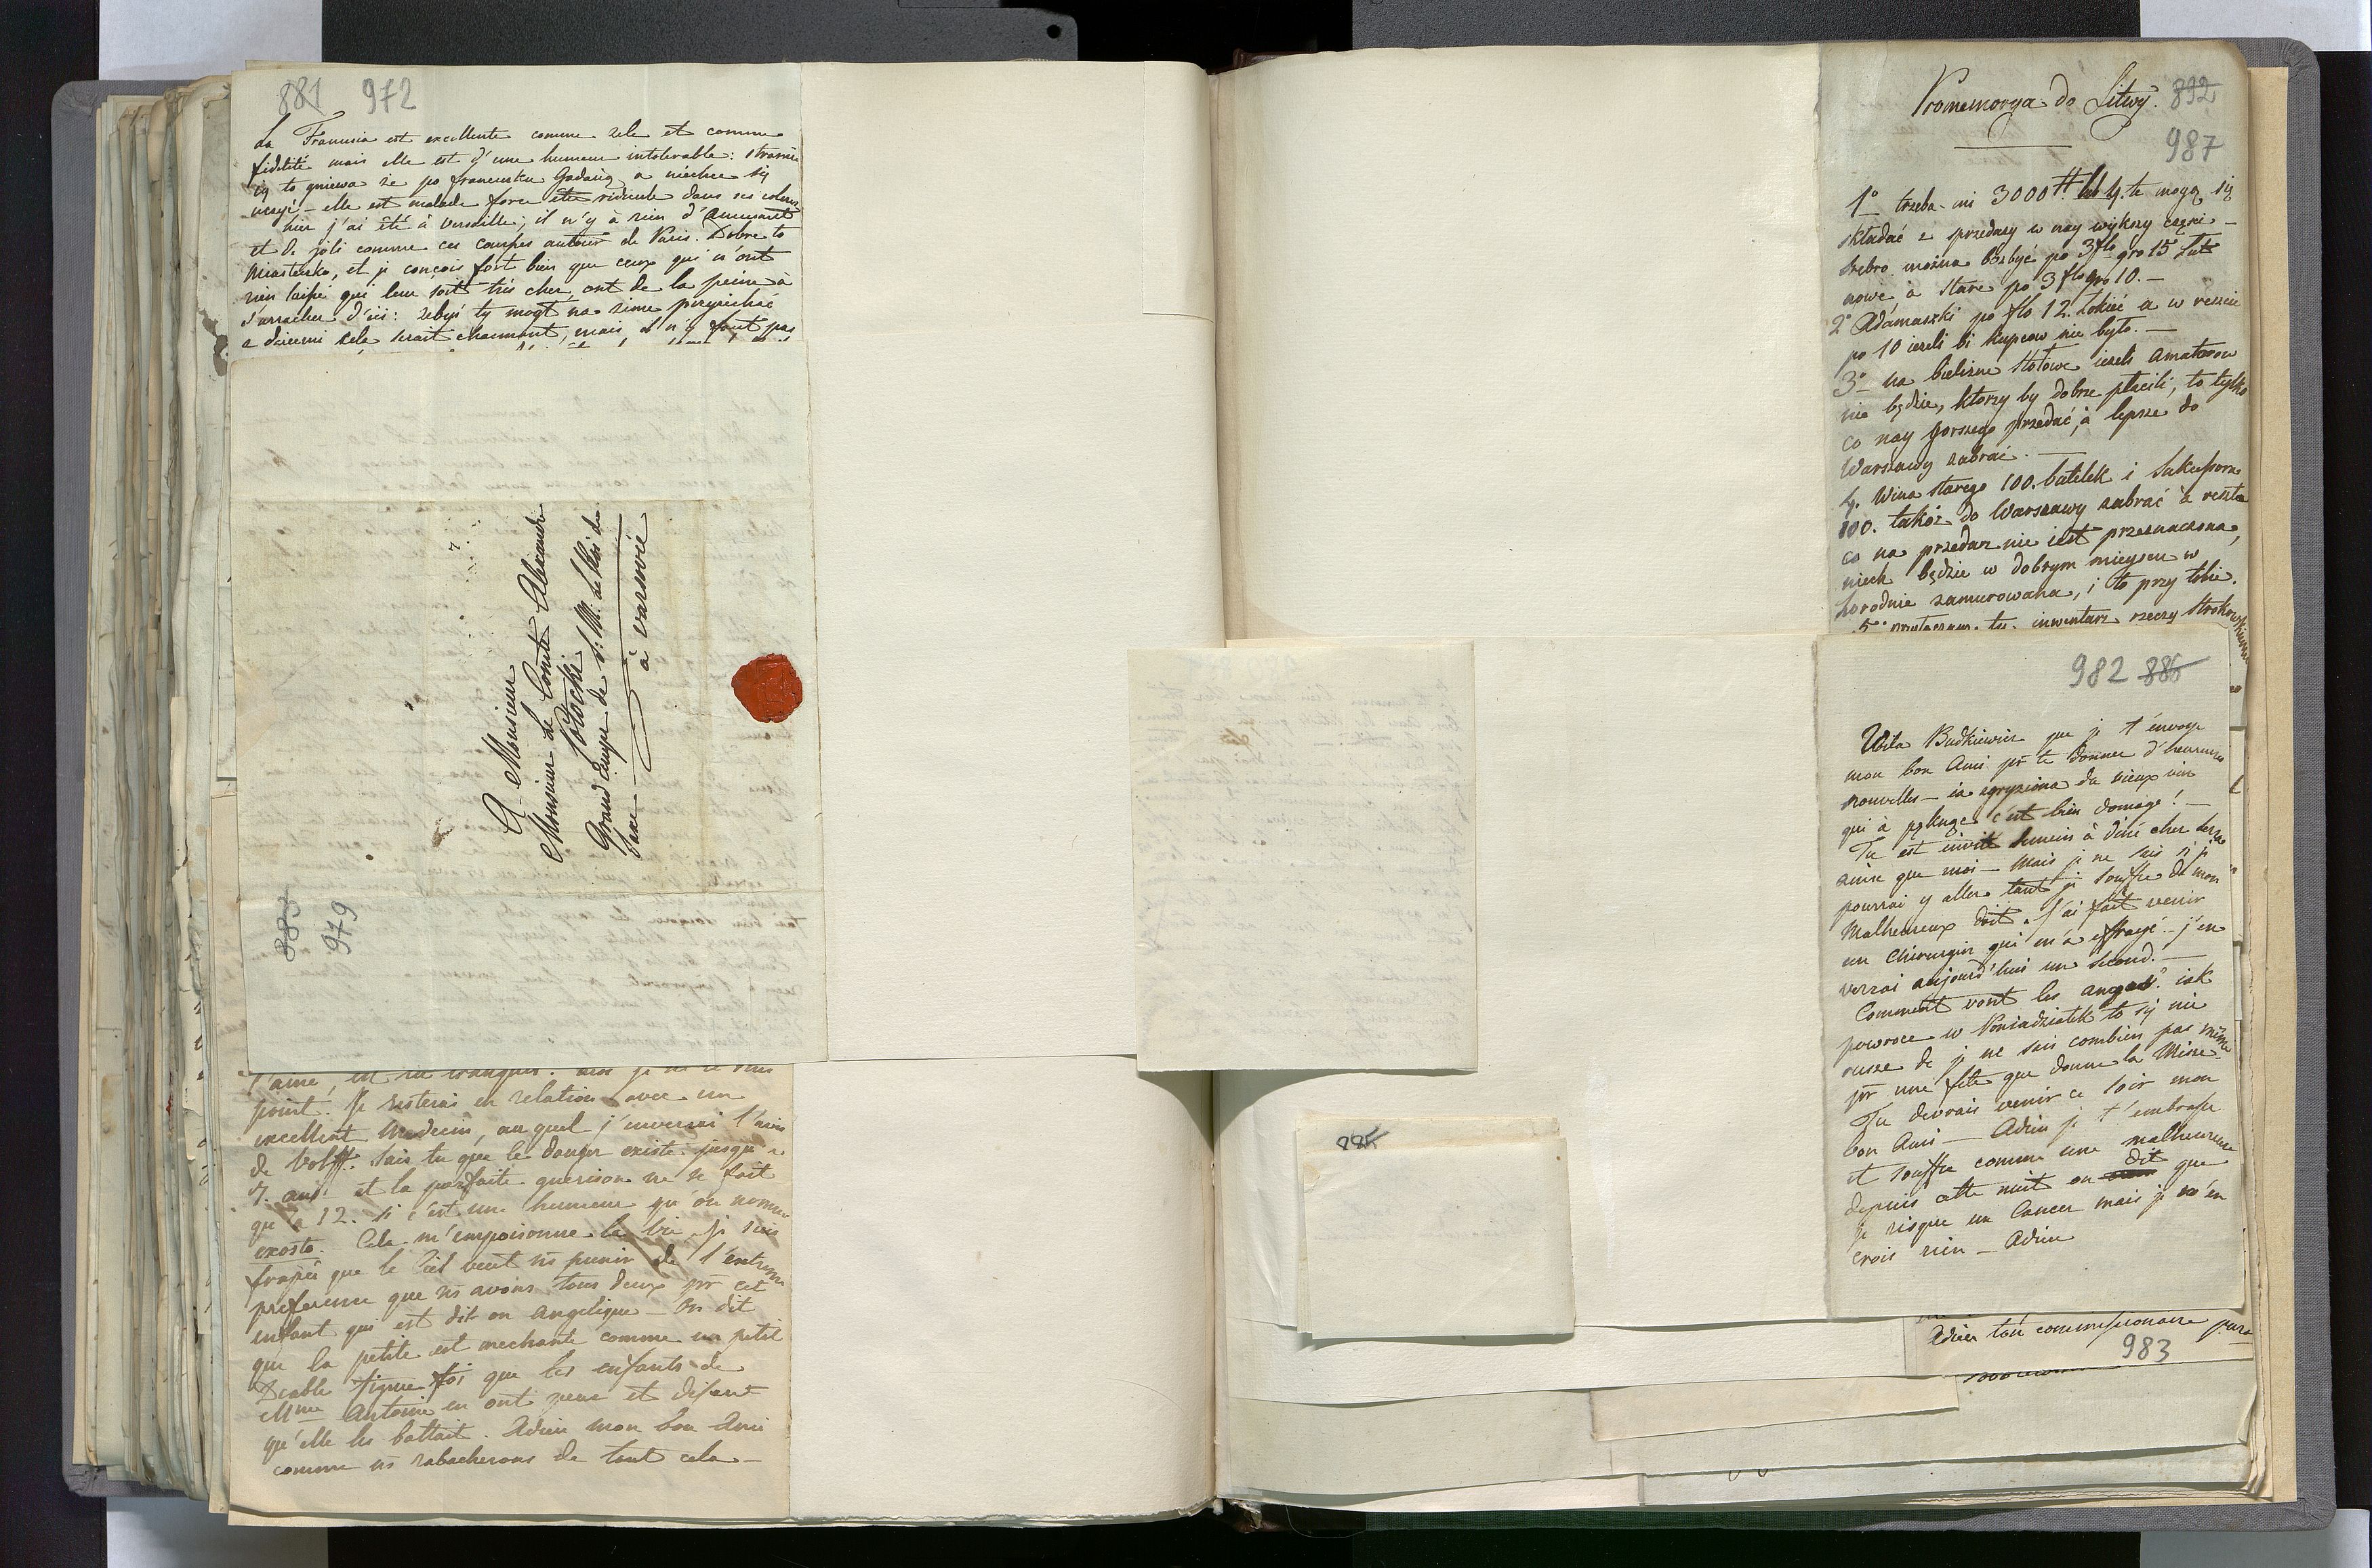 881 972
La Franusia est excellente comme zele et comme
fidelité mais elle est d'une humeur intolerable: strasnie
ią to gniewa że po francusku Gadaią a niechce się
uczyć – elle est malade force etre ridicule dans ses coleres
hier j'ai été à Versaille; il n'y à rien d'amusant
et de joli comme ces courses autour de Paris. Dobre to
Miasteczko, et je conçois fort bien que ceux qui n'ont
rien laissé qui leur soit très cher, ont de la peine à
s'arracher d'ici: żebyś ty mogł na zime przyiechać
z dziecmi cela serait charmant, mais il n'y faut pas
A Monsieur
Monsieur Le Comte Alexandre
Potocki
Grand Ecuyer de S: M: le Roi de
Saxe
à varsovie
883
979
t'aime, est
point. Je resterai en relation avec un
excellent Medecin, auquel j'enverrai l'avis
de Wolff. Sais tu que le danger existe jusqu'a
7. ans: et la parfaite guerison ne se fait
qu'à 12. si c'est une humeur qu'on nomme
exosto. Cela m'empoisonne la vie. Je suis
frapée que le Ciel veut ns punir de l'extreme
preference que ns avons tous deux pr cet
enfant qui est dit on angelique – On dit
que la petite est mechante comme un petit
Diable figure toi que les enfants de
Mme Antoine en ont peur et disent
qu'elle les battait. Adieu mon bon Ami
comme ns rabacherons de tout cela –
885
Promemorya do Litwy. 892
987
1° trzeba mi 3000 # te mogą się
składać z przedaży w nay większy części –
srebro można bozbyć po 3 flo gro 15 Lut
nowe, à stare po 3 flo gro 10. –
2° Adamaszki po flo 12. łokieć a w reszcie
po 10 ieżeli bi kupcow nie było. –
3° na bielizne stołowe ieżeli amatorow
nie będzie, ktorzy by dobrze płacili, to tylko
co nay gorszego przedać, à lepsze do
Warszawy zabrać. –
4. Wina starego 100. butelek i
100. takóż do Warszawy zabrać à reszta
co na przedaz nie iest przeznaczona,
niech będzie w dobrym mieyscu w
horodnie zamurowana, i to przy tobie.
5° inwentarz rzeczy
982 886
Voila Budkiewicz que je t'envoye
mon bon Ami pr te donner d'heureuses
nouvelles – ia zgryziona du vieux vin
qui à pękuge c'est bien domage! –
Tu est invité demein à diné chez
ainse que moi – Mais je ne sais si je
pourrai y aller tant je souffre de mon
Malheureux doit. J'ai fait venir
un Chirurgien qui m'a effrayé – j'en
verrai aujourd'hui un second. –
Comment vont les anges? iak
powroce w Poniedziałek to sy nie
rusze de je ne sais combien pas même
pr une fete que donne la Misse.
Tu devrais venir ce soir mon
bon Ami – Adieu je t'embrasse
et souffre comme une malheureuse
depuis cette nuit on dit que
je risque un Cancer mais je n'en
crois rien – Adieu
Adieu ton commissionaire
983